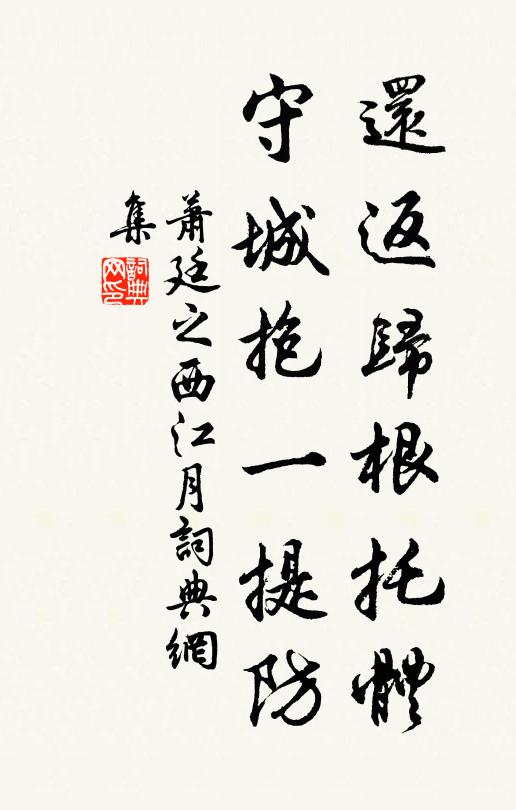 還返歸根托體
守城抱一提防
蕭廷之西江月詞典網
集
詞典網印